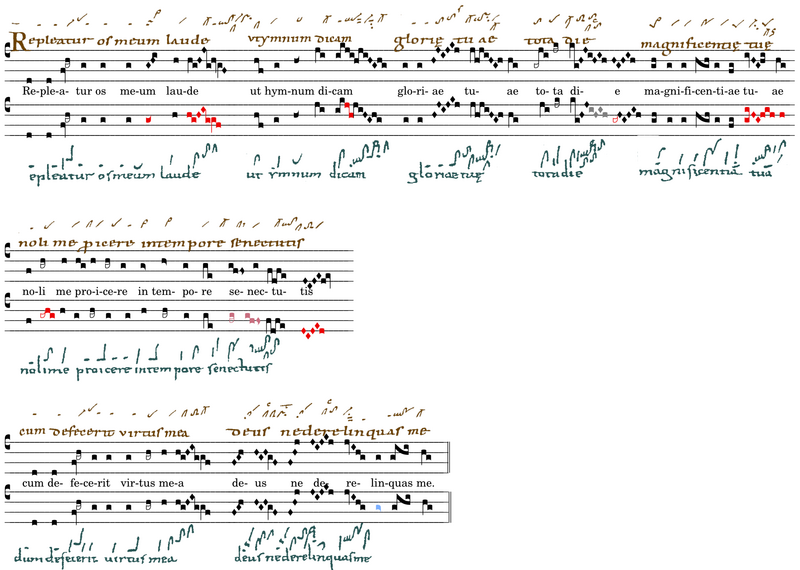 Repleatur os meum laude vt ymnum dicam glorię tuae tota die magnificentię tuę
Re-ple-a- tur os me-um lau-de ut hym-num di-cam glo-ri-ae tu- ae to-ta di- e ma-gni-fi-cen-ti-ae tu- ae
epleatur os meum laude ut ymnum dicam gloriae tuę tota die magnificentia tua
noli me proicere in tempore senectutis
no-li me pro-i-ce-re in tem-po-re se-nec-tu-tis
noli me proicere in tempore senectutis
cum defecerit virtus mea deus ne derelinquas me
cum de-fe-ce-rit vir-tus me-a de-us ne de-re-lin-quas me.
dum defecerit uirtus mea deus ne derelinquas me